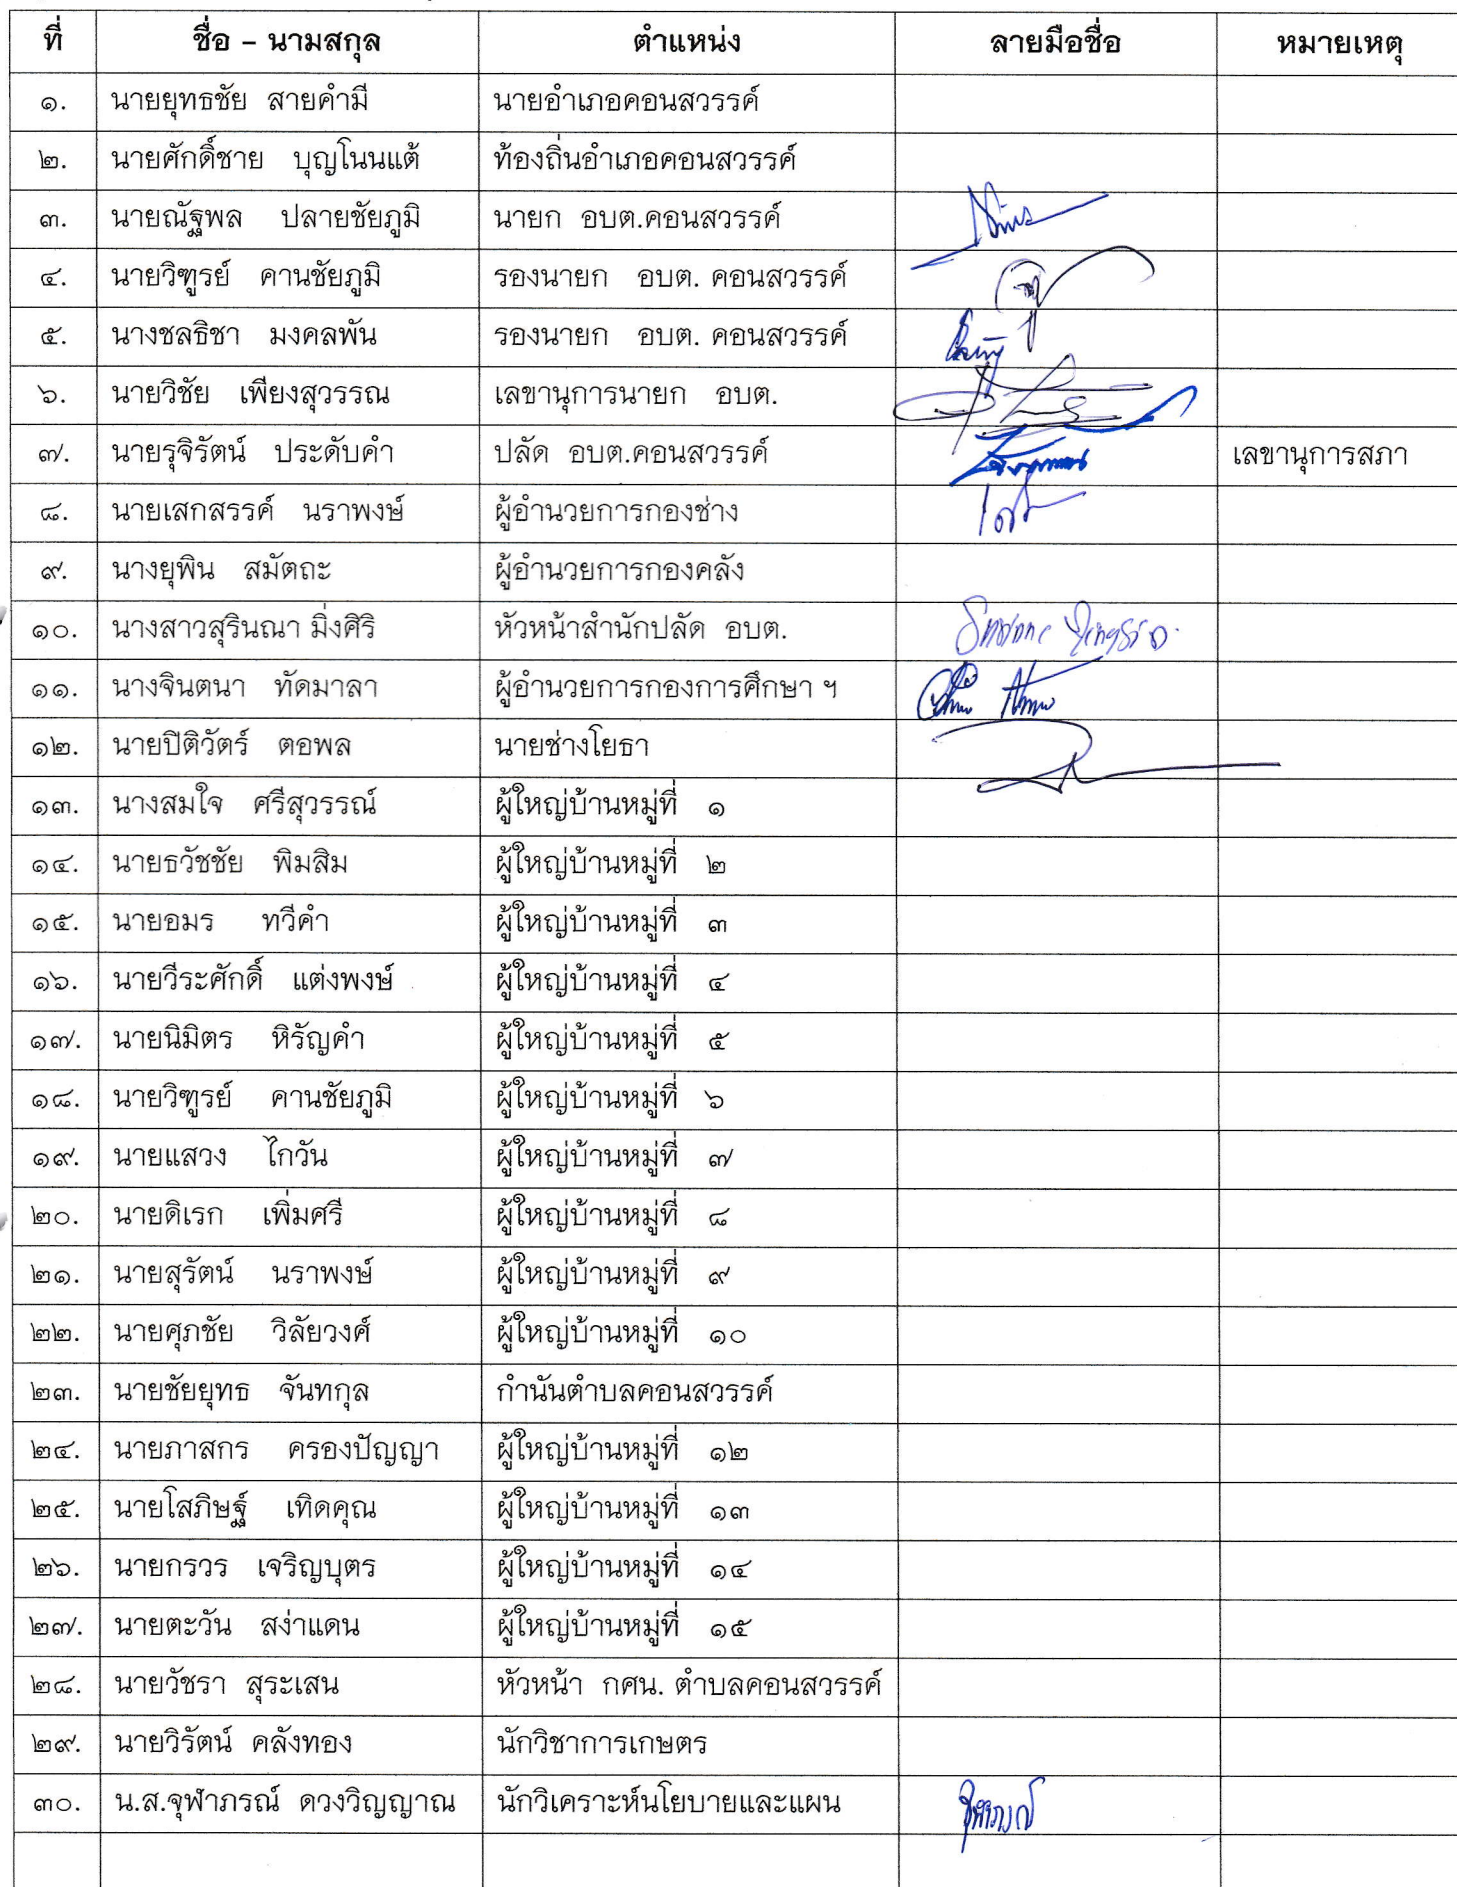 ที่ ชื่อ – นามสกุล ตำแหน่ง ลายมือชื่อ หมายเหตุ
๑. นายยุทธชัย สายคำมี นายอำเภอคอนสวรรค์
๒. นายศักดิ์ชาย บุญโนนแต้ ท้องถิ่นอำเภอคอนสวรรค์
๓. นายณัฐพล ปลายชัยภูมิ นายก อบต.คอนสวรรค์
๔. นายวิฑูรย์ คานชัยภูมิ รองนายก อบต. คอนสวรรค์
๕. นางชลธิชา มงคลพัน รองนายก อบต. คอนสวรรค์
๖. นายวิชัย เพียงสุวรรณ เลขานุการนายก อบต.
๗. นายรุจิรัตน์ ประดับคำ ปลัด อบต.คอนสวรรค์ เลขานุการสภา
๘. นายเสกสรรค์ นราพงษ์ ผู้อำนวยการกองช่าง
๙. นางยุพิน สมัตถะ ผู้อำนวยการกองคลัง
๑๐. นางสาวสุรินณา มิ่งศิริ หัวหน้าสำนักปลัด อบต.
๑๑. นางจินตนา ทัดมาลา ผู้อำนวยการกองการศึกษา ฯ
๑๒. นายปิติวัตร์ ตอพล นายช่างโยธา
๑๓. นางสมใจ ศรีสุวรรณ์ ผู้ใหญ่บ้านหมู่ที่ ๑
๑๔. นายธวัชชัย พิมสิม ผู้ใหญ่บ้านหมู่ที่ ๒
๑๕. นายอมร ทวีคำ ผู้ใหญ่บ้านหมู่ที่ ๓
๑๖. นายวีระศักดิ์ แต่งพงษ์ ผู้ใหญ่บ้านหมู่ที่ ๔
๑๗. นายนิมิตร หิรัญคำ ผู้ใหญ่บ้านหมู่ที่ ๕
๑๘. นายวิฑูรย์ คานชัยภูมิ ผู้ใหญ่บ้านหมู่ที่ ๖
๑๙. นายแสวง ไกวัน ผู้ใหญ่บ้านหมู่ที่ ๗
๒๐. นายดิเรก เพิ่มศรี ผู้ใหญ่บ้านหมู่ที่ ๘
๒๑. นายสุรัตน์ นราพงษ์ ผู้ใหญ่บ้านหมู่ที่ ๙
๒๒. นายศุภชัย วิลัยวงศ์ ผู้ใหญ่บ้านหมู่ที่ ๑๐
๒๓. นายชัยยุทธ จันทกุล กำนันตำบลคอนสวรรค์
๒๔. นายภาสกร ครองปัญญา ผู้ใหญ่บ้านหมู่ที่ ๑๒
๒๕. นายโสภิษฐ์ เทิดคุณ ผู้ใหญ่บ้านหมู่ที่ ๑๓
๒๖. นายกรวร เจริญบุตร ผู้ใหญ่บ้านหมู่ที่ ๑๔
๒๗. นายตะวัน สง่าแดน ผู้ใหญ่บ้านหมู่ที่ ๑๕
๒๘. นายวัชรา สุระเสน หัวหน้า กศน. ตำบลคอนสวรรค์
๒๙. นายวิรัตน์ คลังทอง นักวิชาการเกษตร
๓๐. น.ส.จุฬาภรณ์ ดวงวิญญาณ นักวิเคราะห์นโยบายและแผน จุฬาภรณ์